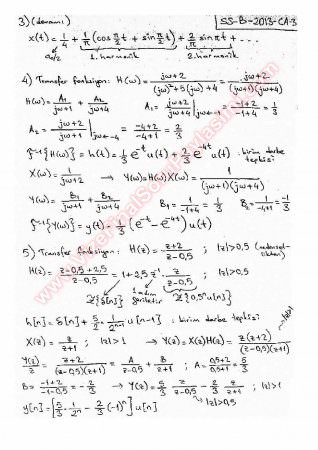 3) (devamı) SS-B-2013-CA-3
x(t) = 1/4 + 1/π (cos π/2 t + sin π/2 t) + 2/π sin πt + ...
a₀/2 1. harmonik 2. harmonik
4) Transfer fonksiyon: H(ω) = (jω+2)/((jω)²+5(jω)+4) = (jω+2)/((jω+1)(jω+4))
H(ω) = A₁/(jω+1) + A₂/(jω+4) A₁ = (jω+2)/(jω+4)|jω=-1 = (-1+2)/(-1+4) = 1/3
A₂ = (jω+2)/(jω+1)|jω=-4 = (-4+2)/(-4+1) = 2/3
ℱ⁻¹{H(ω)} = h(t) = 1/3 e^-t u(t) + 2/3 e^-4t u(t) : birim darbe tepkisi
X(ω) = 1/(jω+2) → Y(ω) = H(ω)X(ω) = 1/((jω+1)(jω+4))
Y(ω) = B₁/(jω+1) + B₂/(jω+4) B₁ = 1/(-1+4) = 1/3 B₂ = 1/(-4+1) = -1/3
ℱ⁻¹{Y(ω)} = y(t) = 1/3 (e^-t - e^-4t) u(t)
5) Transfer fonksiyon: H(z) = (z+2)/(z-0,5) ; |z|>0,5 (nedensellikten)
H(z) = (z-0,5+2,5)/(z-0,5) = 1 + 2,5 z⁻¹ . z/(z-0,5) ; |z|>0,5
Z{δ[n]} 1 adım geriletir Z{0,5ⁿ u[n]}
h[n] = δ[n] + 5/2 . 1/2ⁿ⁻¹ u[n-1] : birim darbe tepkisi
X(z) = z/(z+1) ; |z|>1 → Y(z) = X(z)H(z) = z(z+2)/((z-0,5)(z+1))
Y(z)/z = (z+2)/((z-0,5)(z+1)) = A/(z-0,5) + B/(z+1) ; A = (0,5+2)/(0,5+1) = 5/3
B = (-1+2)/(-1-0,5) = -2/3 → Y(z) = 5/3 z/(z-0,5) - 2/3 z/(z+1) ; |z|>1
y[n] = {5/3 . 1/2ⁿ - 2/3 (-1)ⁿ} u[n] |z|>0,5